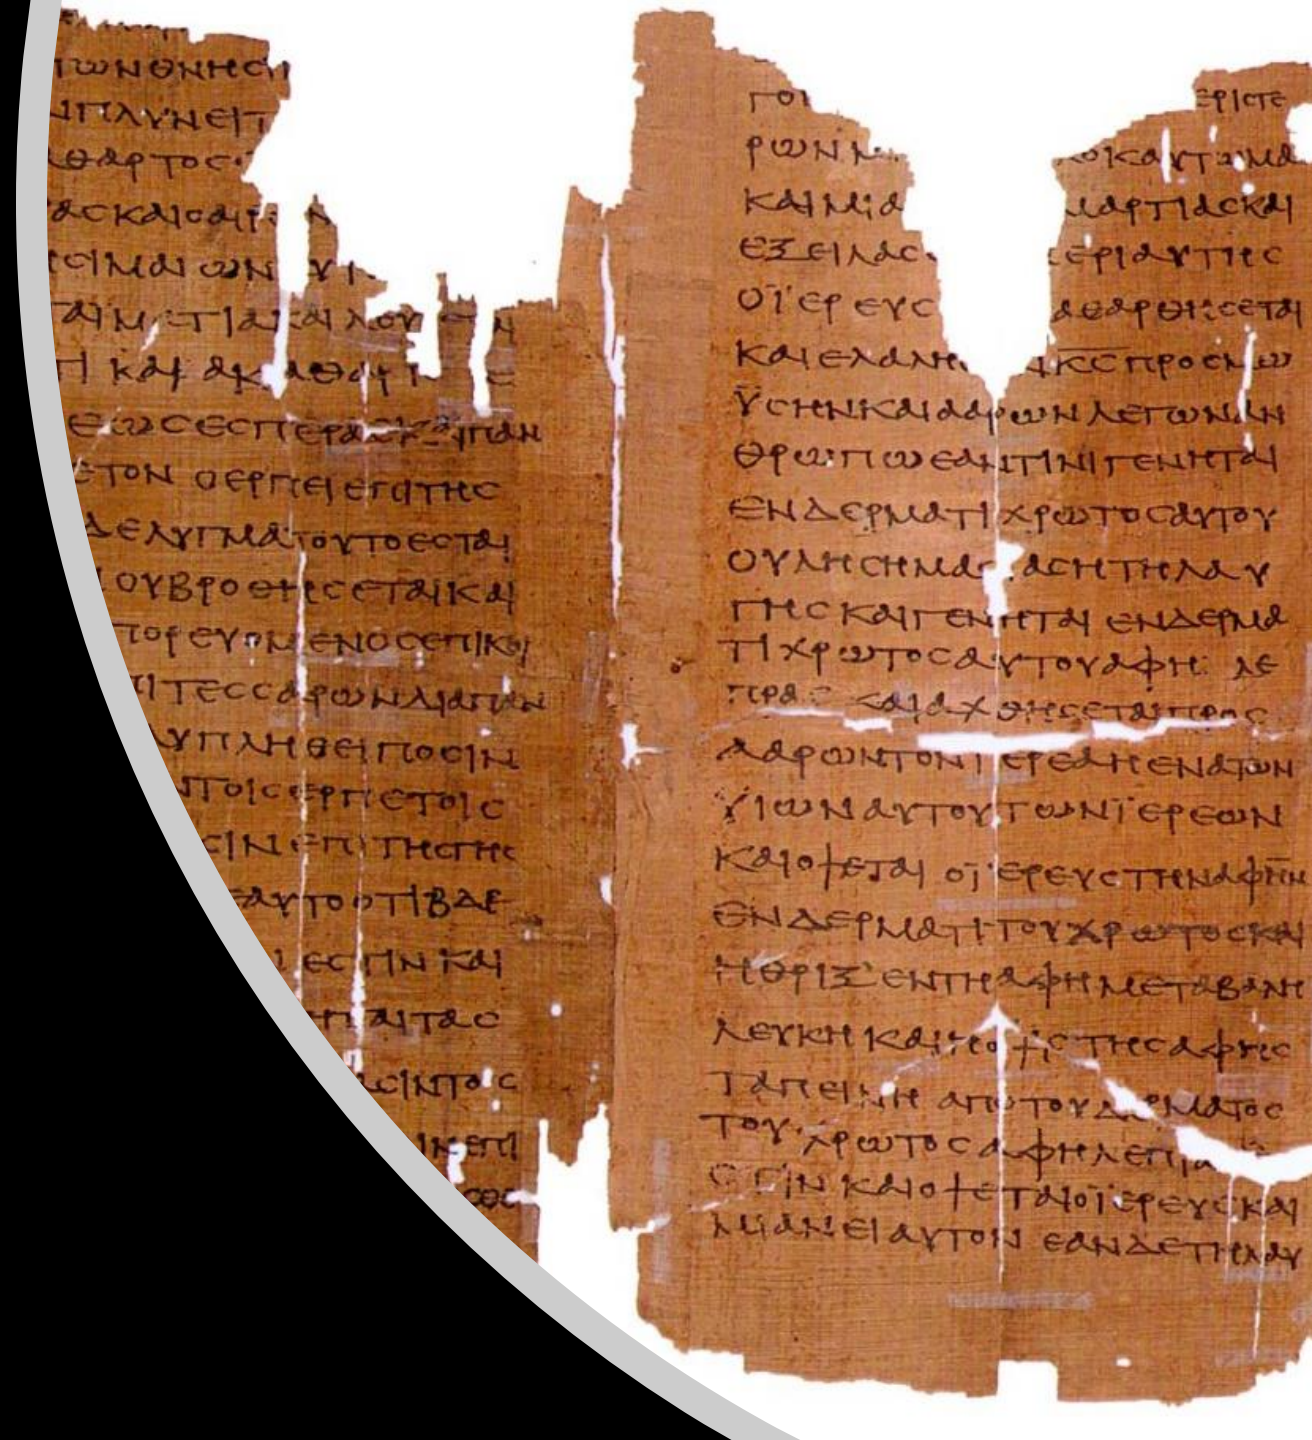 ΤωΝΘΝΗCΙ
ΝΠΛΥΝΕΙΤ
ΑΘΑΡΤΟC
ΑCΚΑΙΟΑΙΡ Ν
CΙΜΑΙωΝ
ΤΙ ΚΑΙ ΑΚΑΘΑΡ
ΕωCΕCΠΕΡΑC ΠΑΝ
ΕΤΟΝ ΟΕΡΠΕΙΕΠΙΤΗC
ΔΕΛΥΓΜΑΤΟΥΤΟΕCΤΑΙ
ΟΥΒΡΟΘΗCΕΤΑΙΚΑΙ
ΠΟΡΕΥΟΜΕΝΟCΕΠΙΚΟΙ
ΠΙΤΕCCΑΡωΝΔΙΑΠΑΝ
ΛΥΠΛΗΘΕΙΠΟCΙΝ
ΝΤΟΙCΕΡΠΕΤΟΙC
CΙΝΕΠΙΤΗCΓΗC
ΕΑΥΤΟΟΤΙΒΔΕ
ΕCΤΙΝ ΚΑΙ
ΠΑΙΤΑC
CΙΝΤΟΙC
ΕΠΙ
CΘΕ
ΓΟΙ ΕΡΙCΤΕ
ΡωΝ ΟΚΑΥΤωΜΑ
ΚΑΙΜΙΑ ΜΑΡΤΙΑCΚΑΙ
ΕΞΕΙΛΑC ΕΡΙΑΥΤΗC
ΟΪΕΡΕΥC ΑΘΑΡΘΗCΕΤΑΙ
ΚΑΙΕΛΑΛΗ Κ̅C̅ΠΡΟCΜω
ΥCΗΝΚΑΙΑΑΡωΝΛΕΓωΝΑΝ
ΘΡωΠωΕΑΝΤΙΝΙΓΕΝΗΤΑΙ
ΕΝΔΕΡΜΑΤΙΧΡωΤΟCΑΥΤΟΥ
ΟΥΛΗCΗΜΑC ΑCΗΤΗΛΑΥ
ΓΗCΚΑΙΓΕΝΗΤΑΙΕΝΔΕΡΜΑ
ΤΙΧΡωΤΟCΑΥΤΟΥΑΦΗ ΛΕ
ΠΡΑC ΚΑΙΑΧΘΗCΕΤΑΙΠΡΟC
ΑΑΡωΝΤΟΝΙΕΡΕΑΗΕΝΑΤωΝ
ΥΙωΝΑΥΤΟΥΤωΝΪΕΡΕωΝ
ΚΑΙΟΨΕΤΑΙΟΪΕΡΕΥCΤΗΝΑΦΗΝ
ΕΝΔΕΡΜΑΤΙΤΟΥΧΡωΤΟCΚΑΙ
ΗΘΡΙΞΕΝΤΗΑΦΗΜΕΤΑΒΑΛΗ
ΛΕΥΚΗΚΑΙΗΟΨΙCΤΗCΑΦΗC
ΤΑΠΕΙΝΗΑΠΟΤΟΥΔΕΡΜΑΤΟC
ΤΟΥΧΡωΤΟCΑΦΗΛΕΠΡΑ
CΤΙΝΚΑΙΟΨΕΤΑΙΟΪΕΡΕΥCΚΑΙ
ΜΙΑΝΕΙΑΥΤΟΝΕΑΝΔΕΤΗΛΑΥ